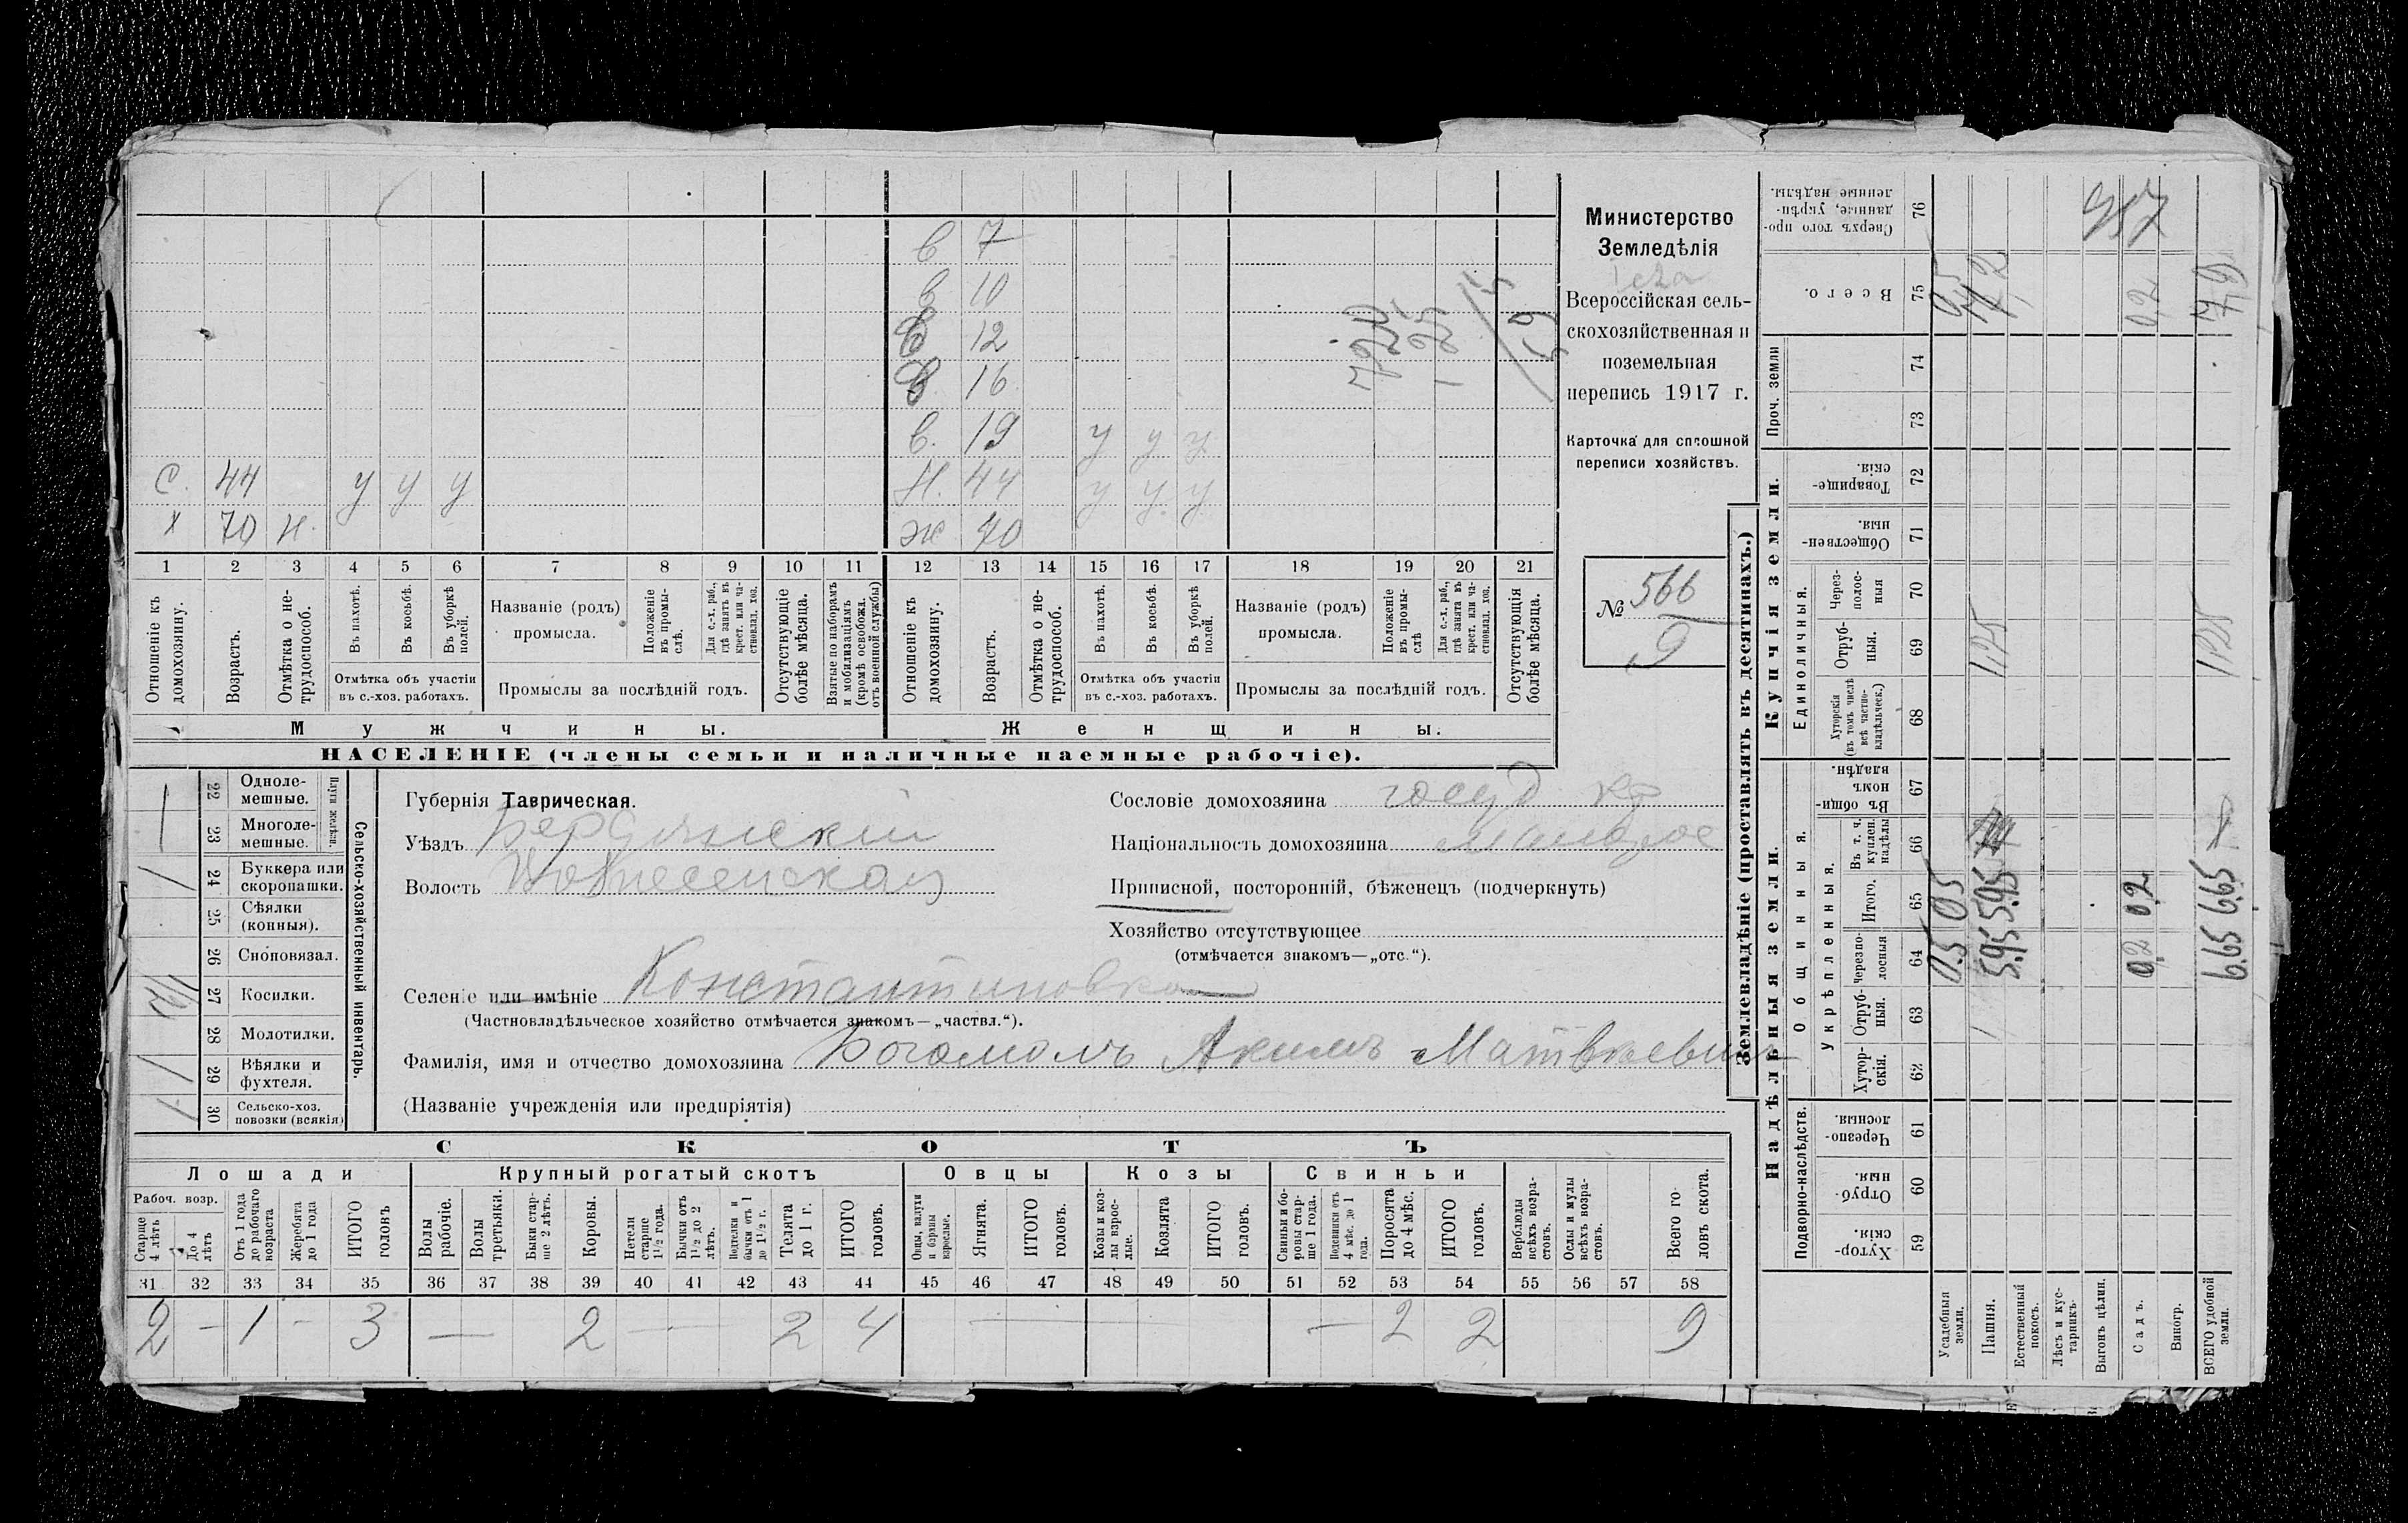 Министерство
Земледѣлія
Всероссійская сель-
скохозяйственная и
поземельная
перепись 1917 г.
Карточка для сплошной
переписи хозяйствъ.
№ 566
9
в 7
в 10
в 12
в 16
в. 19 у у у
С. 44 у у у Н. 44 у у у
х 70 н. ж 70
1 2 3 4 5 6 7 8 9 10 11 12 13 14 15 16 17 18 19 20 21
Отношеніе къ домохозяину.
Возрастъ.
Отмѣтка о не-трудоспособ.
Въ пахотѣ.
Въ косьбѣ.
Въ уборкѣ полей.
Отмѣтка объ участіи
въ с.-хоз. работахъ.
Названіе (родъ)
промысла.
Положеніе въ промы-слѣ.
Для с.-х. раб., гдѣ занятъ въ крест. или ча-стновлад. хоз.
Промыслы за послѣдній годъ.
Отсутствующіе болѣе мѣсяца.
Взятые по наборамъ и мобилизаціямъ (кромѣ освобожд. отъ военной службы)
Отношеніе къ домохозяину.
Возрастъ.
Отмѣтка о не-трудоспособ.
Въ пахотѣ.
Въ косьбѣ.
Въ уборкѣ полей.
Отмѣтка объ участіи
въ с.-хоз. работахъ.
Названіе (родъ)
промысла.
Положеніе въ промы-слѣ
Для с.-х. раб., гдѣ занята въ крест. или ча-стновлад. хоз.
Промыслы за послѣдній годъ.
Отсутствующія болѣе мѣсяца.
Мужчины. Женщины.
НАСЕЛЕНІЕ (члены семьи и наличные наемные рабочіе).
Сельско-хозяйственный инвентарь.
22 Одноле-мешные.
23 Многоле-мешные.
24 Буккера или скоропашки.
25 Сѣялки (конныя).
26 Сноповязал.
27 Косилки.
28 Молотилки.
29 Вѣялки и фухтеля.
30 Сельско-хоз. повозки (всякія)
Губернія Таврическая.
Уѣздъ Бердянскій
Волость Вознесенская
Сословіе домохозяина госуд кр
Національность домохозяина Малорос
Приписной, посторонній, бѣженецъ (подчеркнуть)
Хозяйство отсутствующее
(отмѣчается знакомъ—„отс.“).
Селеніе или имѣніе Константиновка
(Частновладѣльческое хозяйство отмѣчается знакомъ—„частвл.“).
Фамилія, имя и отчество домохозяина Богомолъ Акимъ Матвѣевичъ
(Названіе учрежденія или предпріятія)
СКОТЪ
Лошади Крупный рогатый скотъ Овцы Козы Свиньи
Рабоч. возр.
Старше 4 лѣтъ
До 4 лѣтъ
Отъ 1 года до рабочаго возраста
Жеребята до 1 года
ИТОГО головъ
Волы рабочіе.
Волы третьяки.
Быки стар-ше 2 лѣтъ.
Коровы.
Нетели старше 1½ года.
Бычки отъ 1½ до 2 лѣтъ.
Подтелки и бычки отъ 1 до 1½ г.
Телята до 1 г.
ИТОГО головъ.
Овцы, валухи и бараны взрослые.
Ягнята.
ИТОГО головъ.
Козы и коз-лы взрос-лые.
Козлята
ИТОГО головъ.
Свиньи и бо-ровы стар-ше 1 года.
Подсвинки отъ 4 мѣс. до 1 года.
Поросята до 4 мѣс.
ИТОГО головъ.
Верблюды всѣхъ возра-стовъ.
Ослы и мулы всѣхъ возра-стовъ.
Всего го-ловъ скота.
31 32 33 34 35 36 37 38 39 40 41 42 43 44 45 46 47 48 49 50 51 52 53 54 55 56 57 58
2 — 1 — 3 — 2 — 2 4 — — 2 2 9
Землевладѣніе (проставлять въ десятинахъ.)
Надѣльныя земли. Купчія земли.
Подворно-наслѣдств.
Общинныя.
Укрѣпленныя.
Единоличныя.
Проч. земли
59 Хутор-скія.
60 Отруб-ныя.
61 Черезпо-лосныя.
62 Хутор-скія.
63 Отруб-ныя.
64 Черезпо-лосныя
65 Итого.
66 Въ т. ч. куплен. надѣлы
67 Въ общи-номъ владѣн.
68 Хуторскія (въ томъ числѣ всѣ частно-владѣльческ.)
69 Отруб-ныя.
70 Через-полос-ныя
71 Обществен-ныя.
72 Товарище-скія.
73
74
75 Всего.
76 Сверхъ того про-данные, укрѣп-ленные надѣлы.
Усадебныя земли. 0.5 0.5 0,5
Пашня. 5.95 5.95 1,25 7,2
Естественный покосъ.
Лѣсъ и кус-тарникъ.
Выгонъ цѣлин.
Садъ. 0.2 0.2 0,2
Виногр.
ВСЕГО удобной земли. 6.65 6.65 1,25 7,9